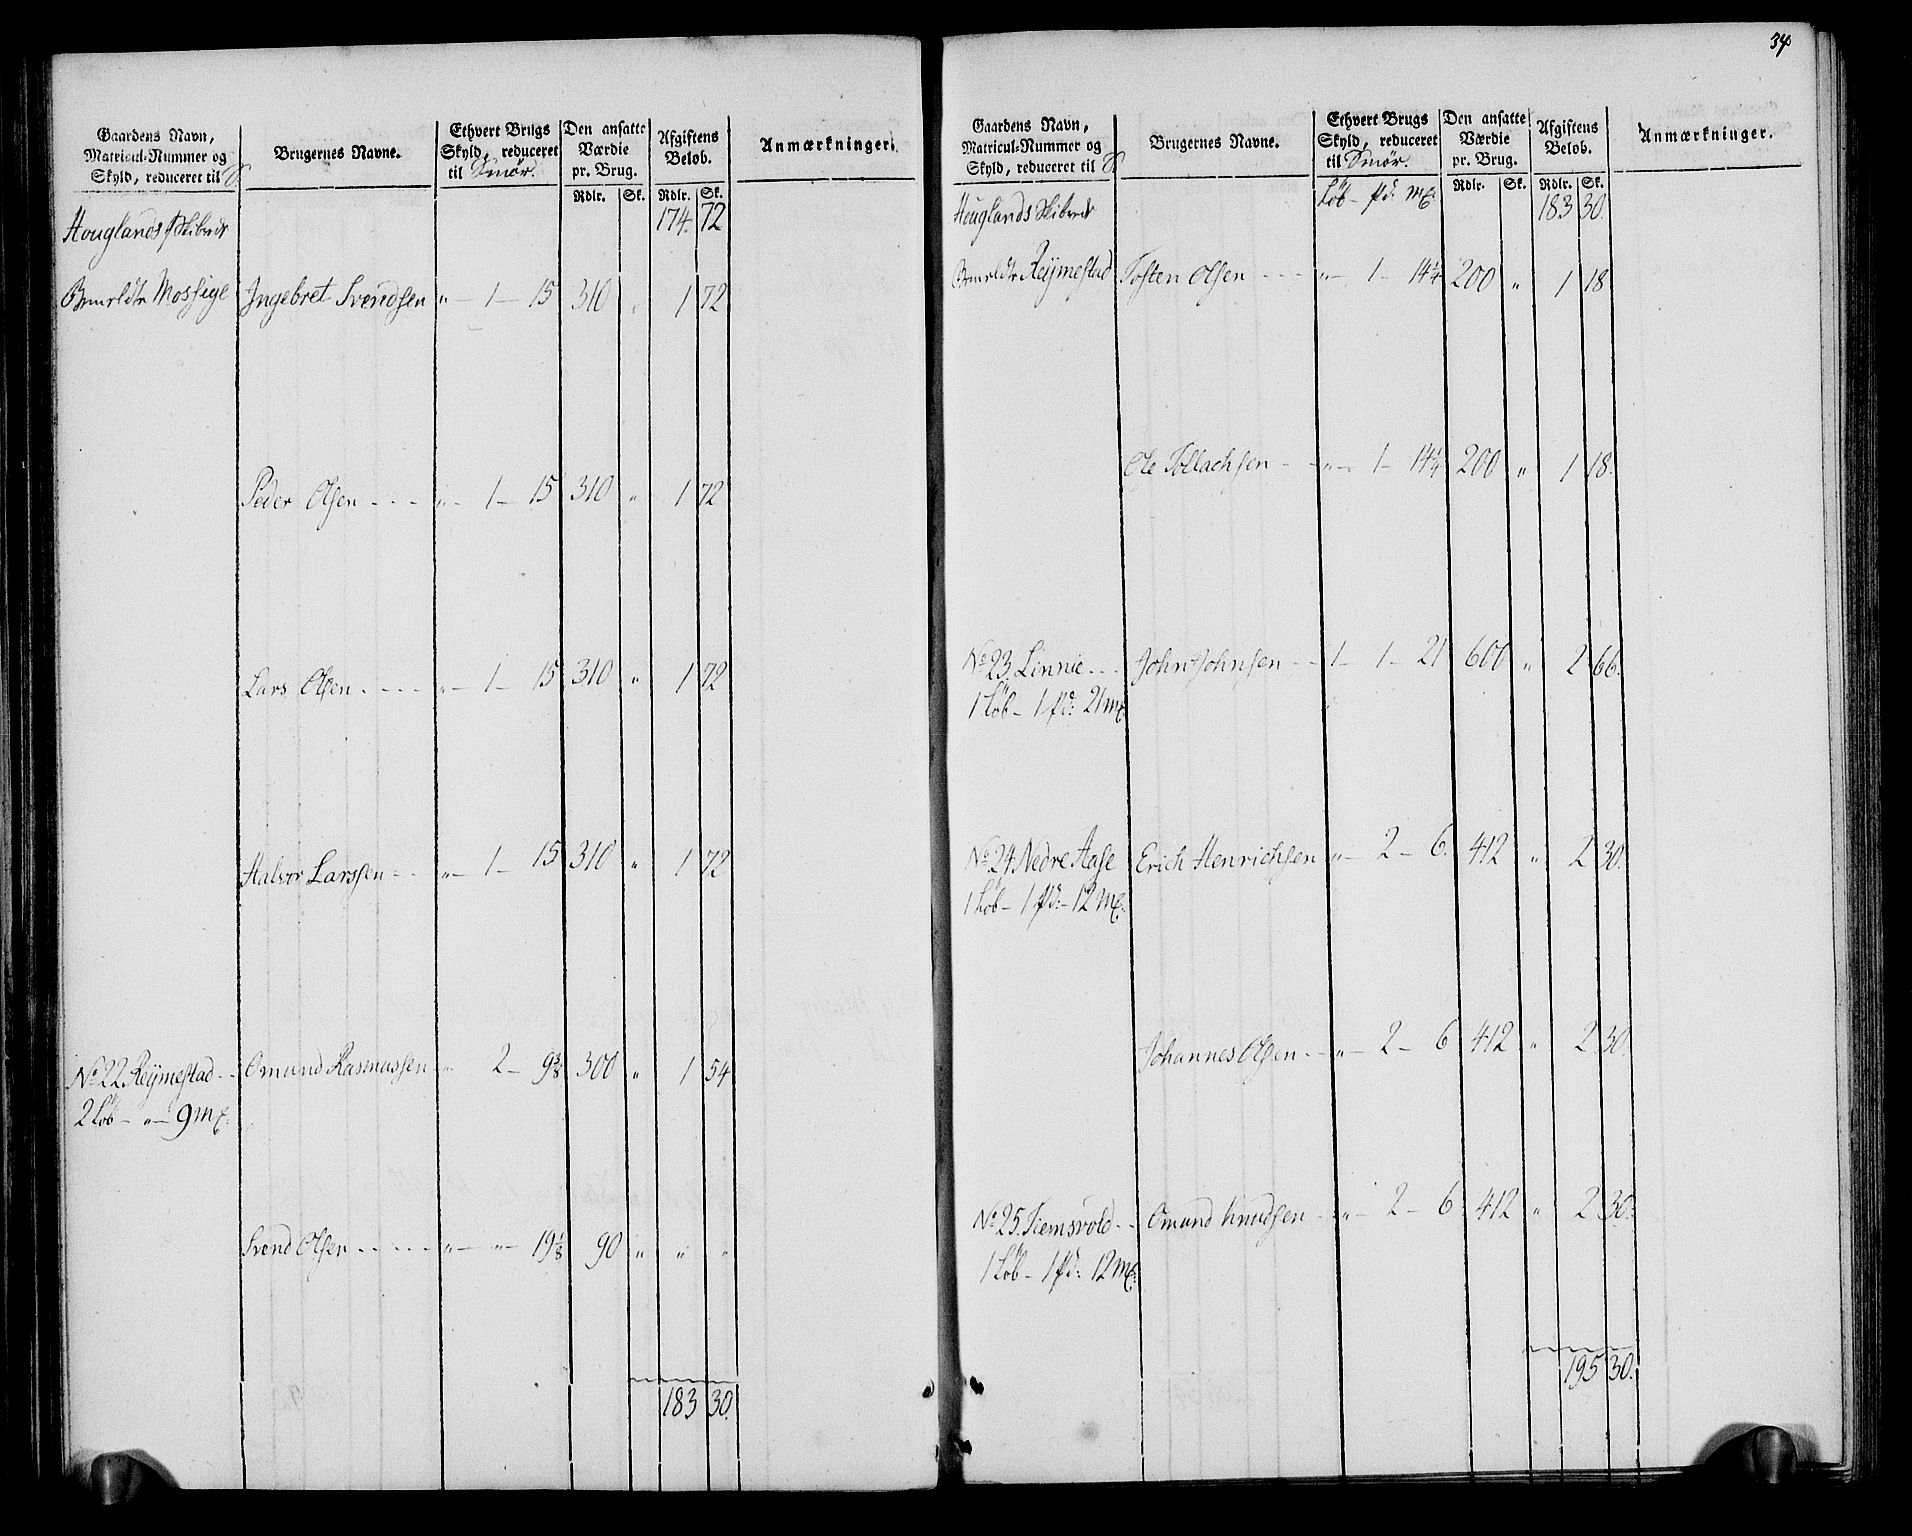 34
Gaardens Navn,
Matricul-Nummer og
Skyld, reduceret til S.
Brugernes Navne.
Ethvert Brugs
Skyld, reduceret
til Smör.
Den ansatte
Værdie
pr. Brug.
Rdlr. Sk.
Afgiftens
Beløb.
Rdlr. Sk.
Anmærkninger.
Houglands Skibrede 174. 72
Mossige Ingebret Svendsen " 1 15 310 " 1 72
Peder Olsen " 1 15 310 " 1 72
Lars Olsen " 1 15 310 " 1 72
Halvor Larssen " 1 15 310 " 1 72
No 22 Reijmestad Omund Rasmussen " 2 9 3/8 300 " 1 54
2 Löb " 9 mk.
Svend Olsen " " 19 1/8 90 " " "
183 30.
Gaardens Navn,
Matricul-Nummer og
Skyld, reduceret til S.
Brugernes Navne.
Ethvert Brugs
Skyld, reduceret
til Smör.
Den ansatte
Værdie
pr. Brug.
Rdlr. Sk.
Afgiftens
Beløb.
Rdlr. Sk.
Anmærkninger.
Houglands Skibrede Löb pd: mk. 183 30.
Reijmestad Tosten Olsen " 1 14 1/4 200 " 1 18
Ole Tollachsen " 1 14 1/4 200 " 1 18.
No 23. Linnie John Johnsen 1 1 21 600 " 2 66.
1 Löb 1 pd: 21 mk.
No 24 Nedre Aase Erich Henrichsen " 2 6. 412 " 2 30.
1 Löb 1 pd: 12 mk.
Johannes Olsen " 2 6 412 " 2 30.
No 25. Tiemsvold Omund Knudsen " 2 6 412 " 2 30.
1 Löb 1 pd: 12 mk.
195 30.